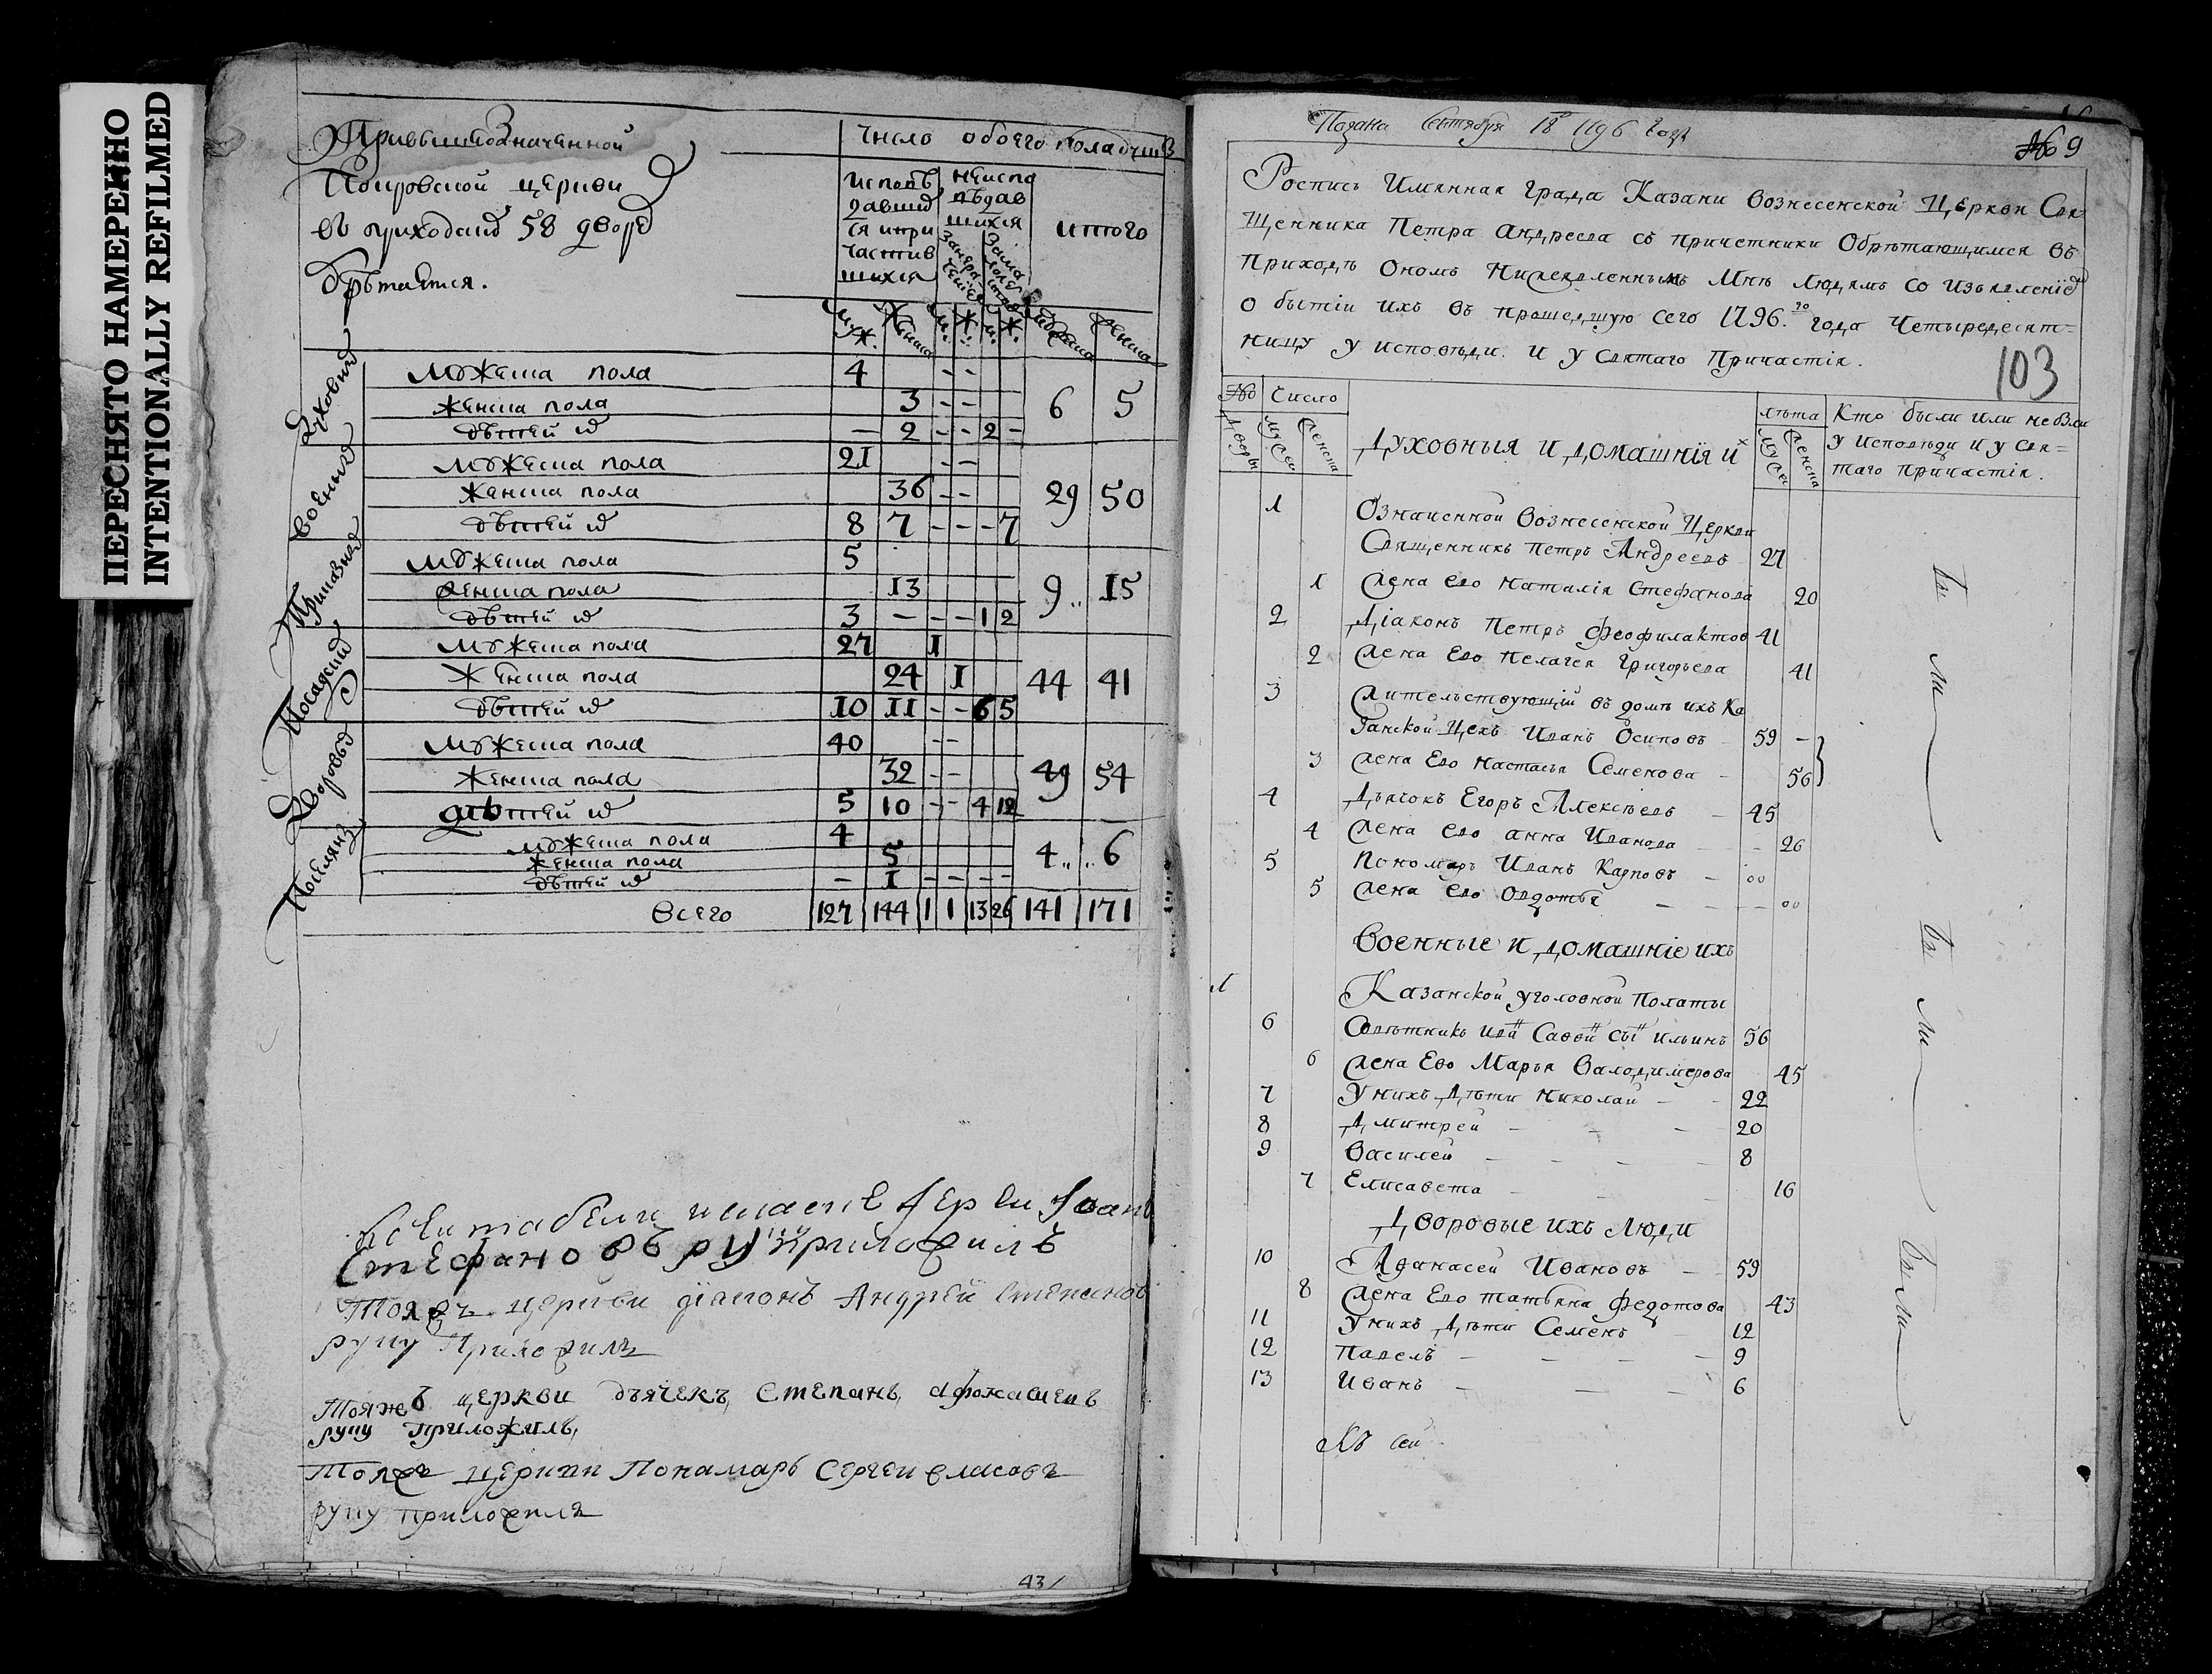 ПЕРЕСНЯТО НАМЕРЕННО
INTENTIONALLY REFILMED
При вышеозначенной
Покровской церкви
въ приходахъ 58 дворѣ
обрѣтается.
число обоего пола душъ
исповѣдавшихся и причастившихся
неисповѣдавшихся
итого
муж. женска м. ж. м. ж. женска
Духовныхъ
мужеска пола 4 - -
женска пола 3 - - 6 5
дѣтей ихъ - 2 - - 2 -
Военныхъ
мужеска пола 21 - -
женска пола 36 - - 29 50
дѣтей ихъ 8 7 - - - 7
Приказныхъ
мужеска пола 5
женска пола 13 9 15
дѣтей ихъ 3 - - - 1 2
Посадскихъ
мужеска пола 27 1
женска пола 24 1 44 41
дѣтей ихъ 10 11 - - 6 5
Дворовыхъ
мужеска пола 40 - -
женска пола 32 - - 49 54
дѣтей ихъ 5 10 - - 4 12
Поселянъ
мужеска пола 4
женска пола 5 4 6
дѣтей ихъ - 1 - - - -
Всего 127 144 1 1 13 26 141 171
Стефановъ руку приложилъ
Тояжъ церкви діаконъ Андрей Степановъ
руку приложилъ
Тояжъ церкви дьячекъ, Степанъ,
руку приложилъ,
Тояжъ церкви Понамарь Сергеи Власовъ
руку приложилъ
43/
Подана Сентября 18 1796 года
№ 9
Роспись Имянная града Казани Вознесенской Церкви Свя
щенника Петра Андреева съ причетники Обрѣтающимся въ
приходѣ Ономъ Нижеявленнымъ Мнѣ людямъ со изъявленіе
о бытіи ихъ въ прошедшую сего 1796.го года Четыредесят=
ницу у исповѣди. и у святаго Причастія.
103
№ Число лѣта Кто были или не были
дворы мужес женска Духовныя и домашнія их мужес женска у исповѣди и у свя=
таго причастія.
1 Означенной Вознесенской Церкви
Священникъ Петръ Андреевъ 27
1 Жена ево Наталія Стефанова 20
2 Діаконъ Петръ Феофилактов 41
2 Жена Ево Пелагея Григорьева 41
3 Жительствующій въ домѣ ихъ Ка
занской Цехъ Иванъ Осиповъ 59 -
3 Жена Ево Настасья Семенова - 56
4 Дьячокъ Егоръ Алексѣевъ - 45
4 Жена ево анна Иванова - - 26
5 Пономарь Иванъ Карповъ - 00
5 Жена ево Овдотья - - - 00
Бы ли
Военные и домашніе ихъ
1 Казанской уголовной Полаты
6 Совѣтникъ ива Саввй съ ильинъ 56
6 Жена Ево Марья Валодимерова 45
7 У нихъ Дѣти Николай - - 22
8 Дмитрей - - - 20
9 Василей - - - - 8
7 Елисавета - - - 16
Бы ли
Дворовые ихъ Люди
10 Афанасей Ивановъ - - 59
8 Жена Ево татьяна Федотова 43
11 У нихъ Дѣти Семенъ - 12
12 Павелъ - - - - 9
13 Иванъ - - - 6
Бы ли
Къ сей